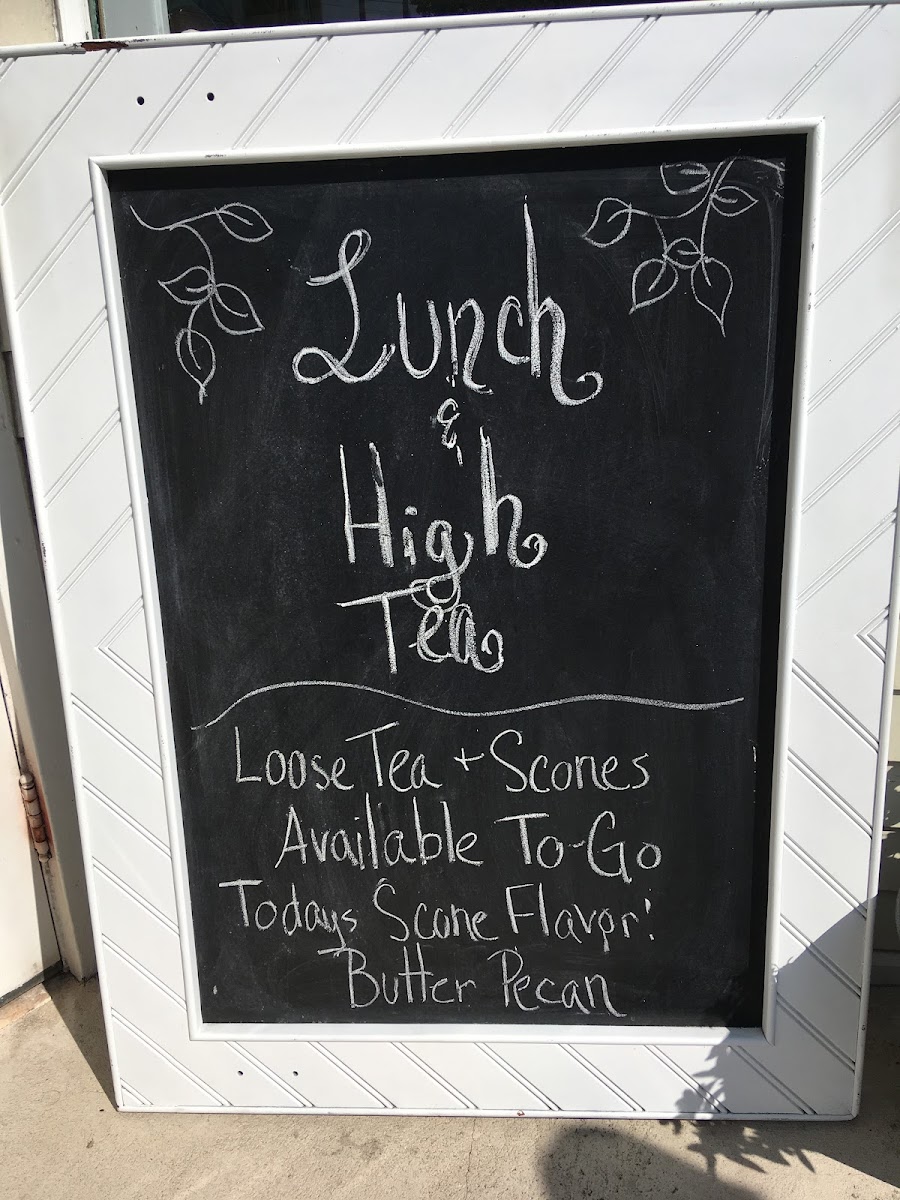 Lunch
&
High
Tea
Loose Tea + Scones
Available To-Go
Todays Scone Flavor!
Butter Pecan